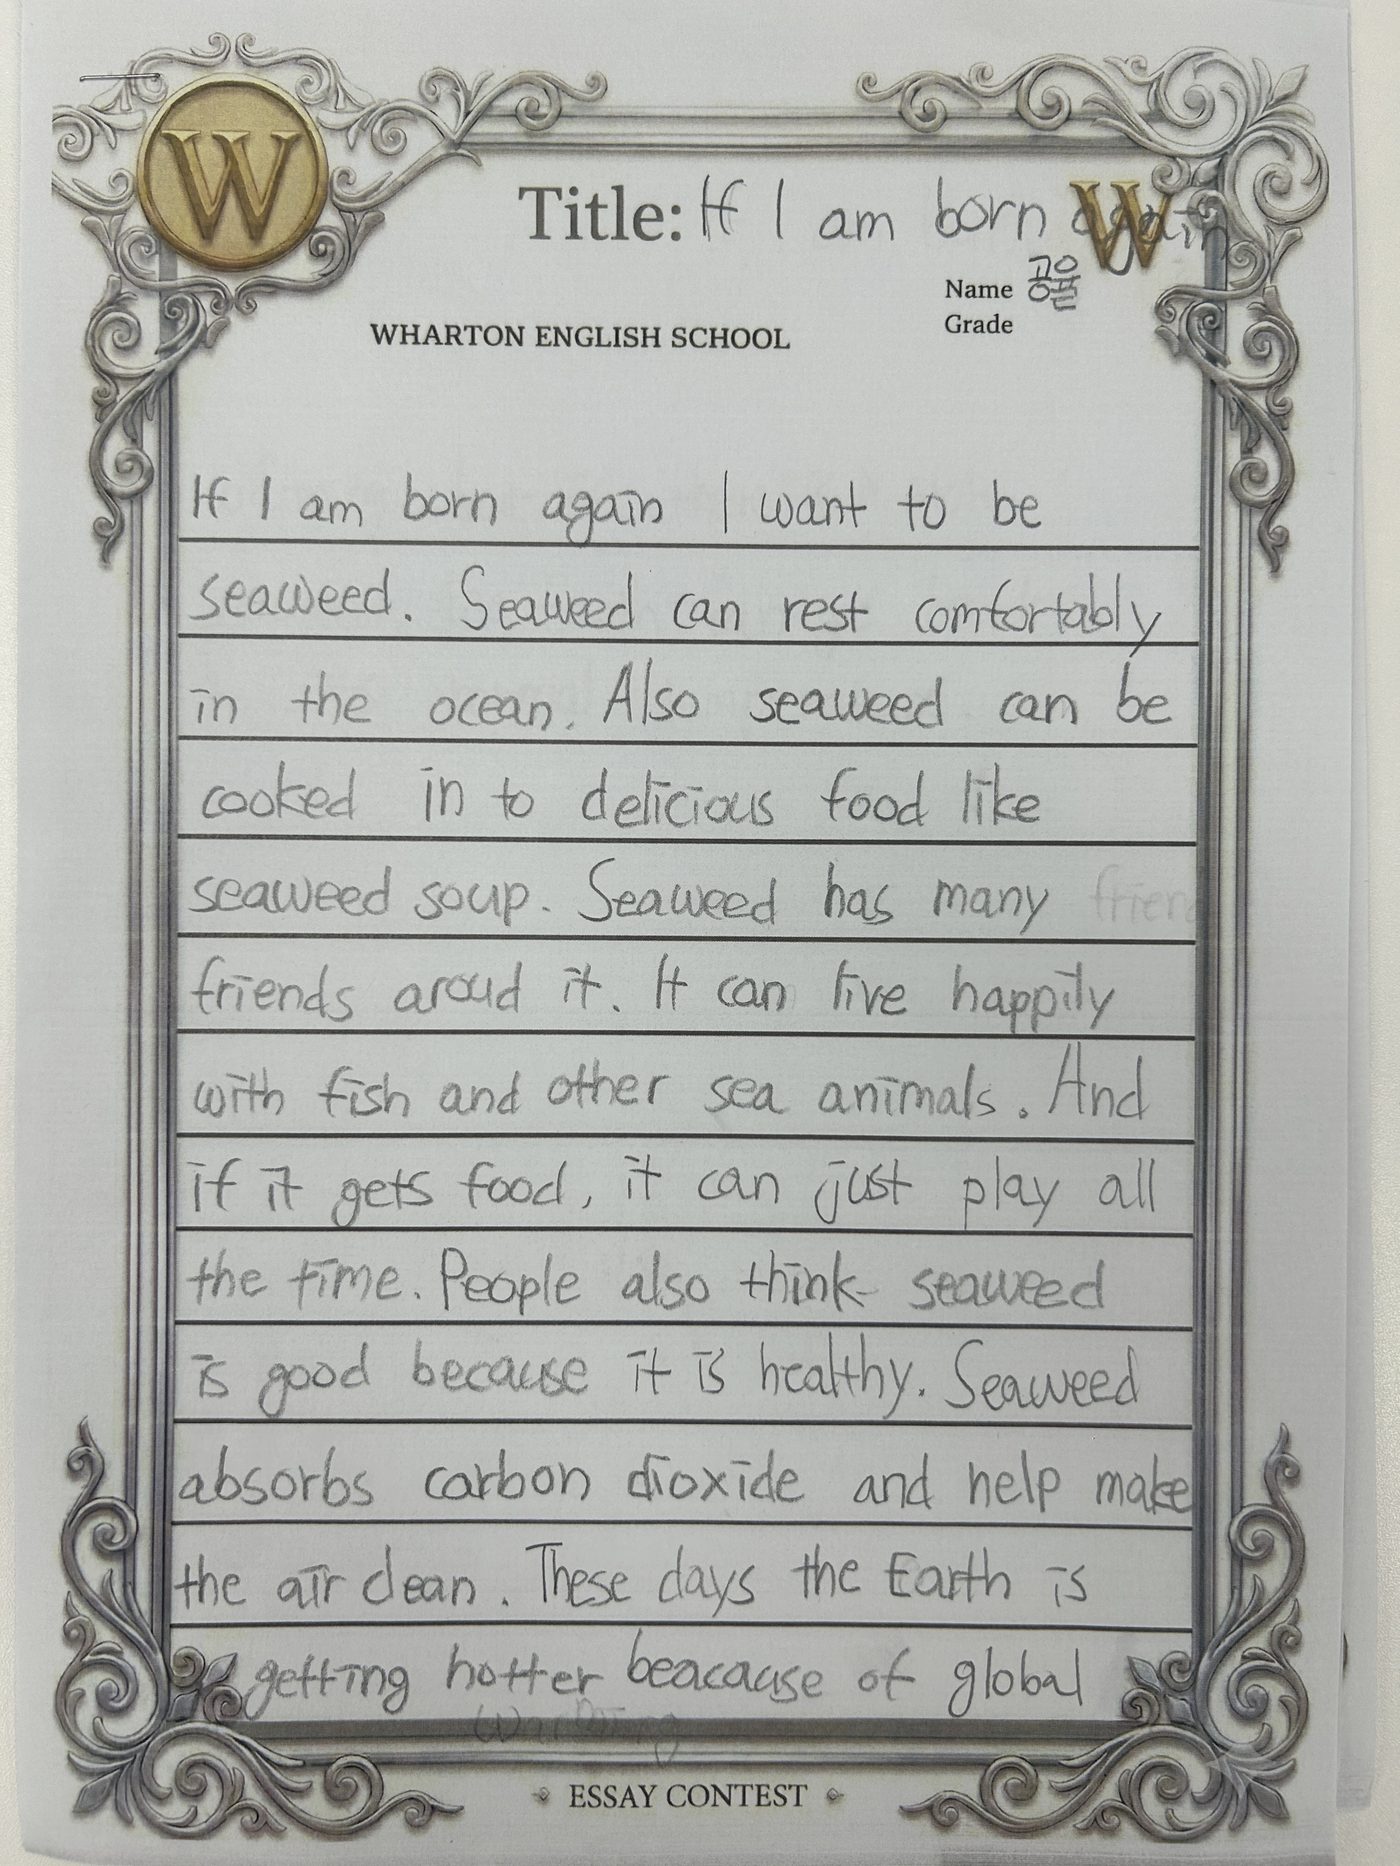 W
Title: If I am born again
W
Name 공율
Grade
WHARTON ENGLISH SCHOOL
If I am born again I want to be
seaweed. Seaweed can rest comfortably
in the ocean. Also seaweed can be
cooked in to delicious food like
seaweed soup. Seaweed has many
friends aroud it. It can live happily
with fish and other sea animals. And
if it gets food, it can just play all
the time. People also think seaweed
is good because it is healthy. Seaweed
absorbs carbon dioxide and help make
the air clean. These days the Earth is
getting hotter beacause of global
warming
ESSAY CONTEST